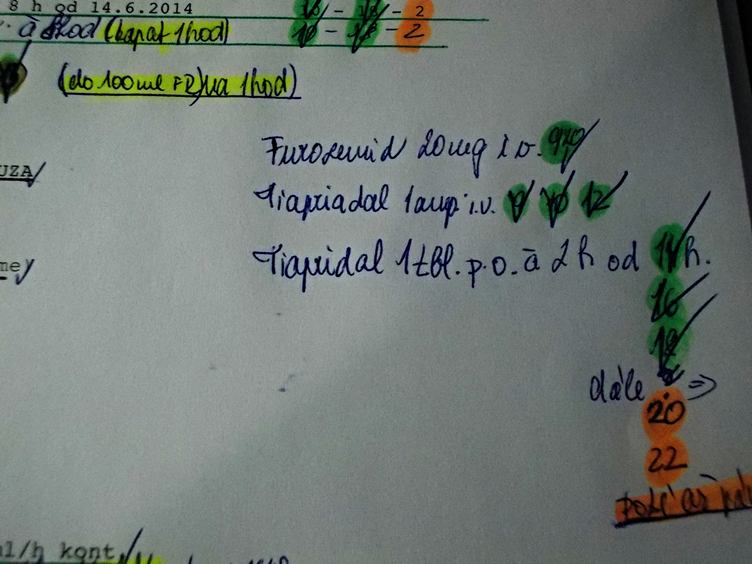 8 h od 14.6.2014
- 2
(kapat 1hod) 10 - 18 - 2
(do 100ml FR) na 1hod)
UZA
Furosemid 20mg i.v.
Tiapriadal 1amp i.v. 12
me
Tiapridal 1tbl. p.o. à 2h od 14h.
16
18
dále ⇒
20
22
poté až
ml/h kont